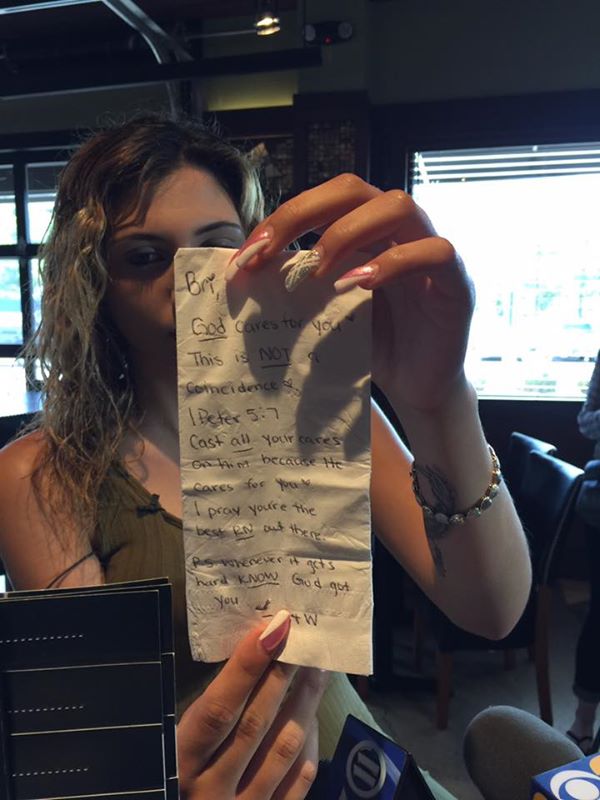 Bri,
God cares for you
This is NOT a
coincidence
1 Peter 5:7
Cast all your cares
on him because He
cares for you
I pray you're the
best RN out there.
P.S whenever it gets
hard KNOW God got
you
+ W